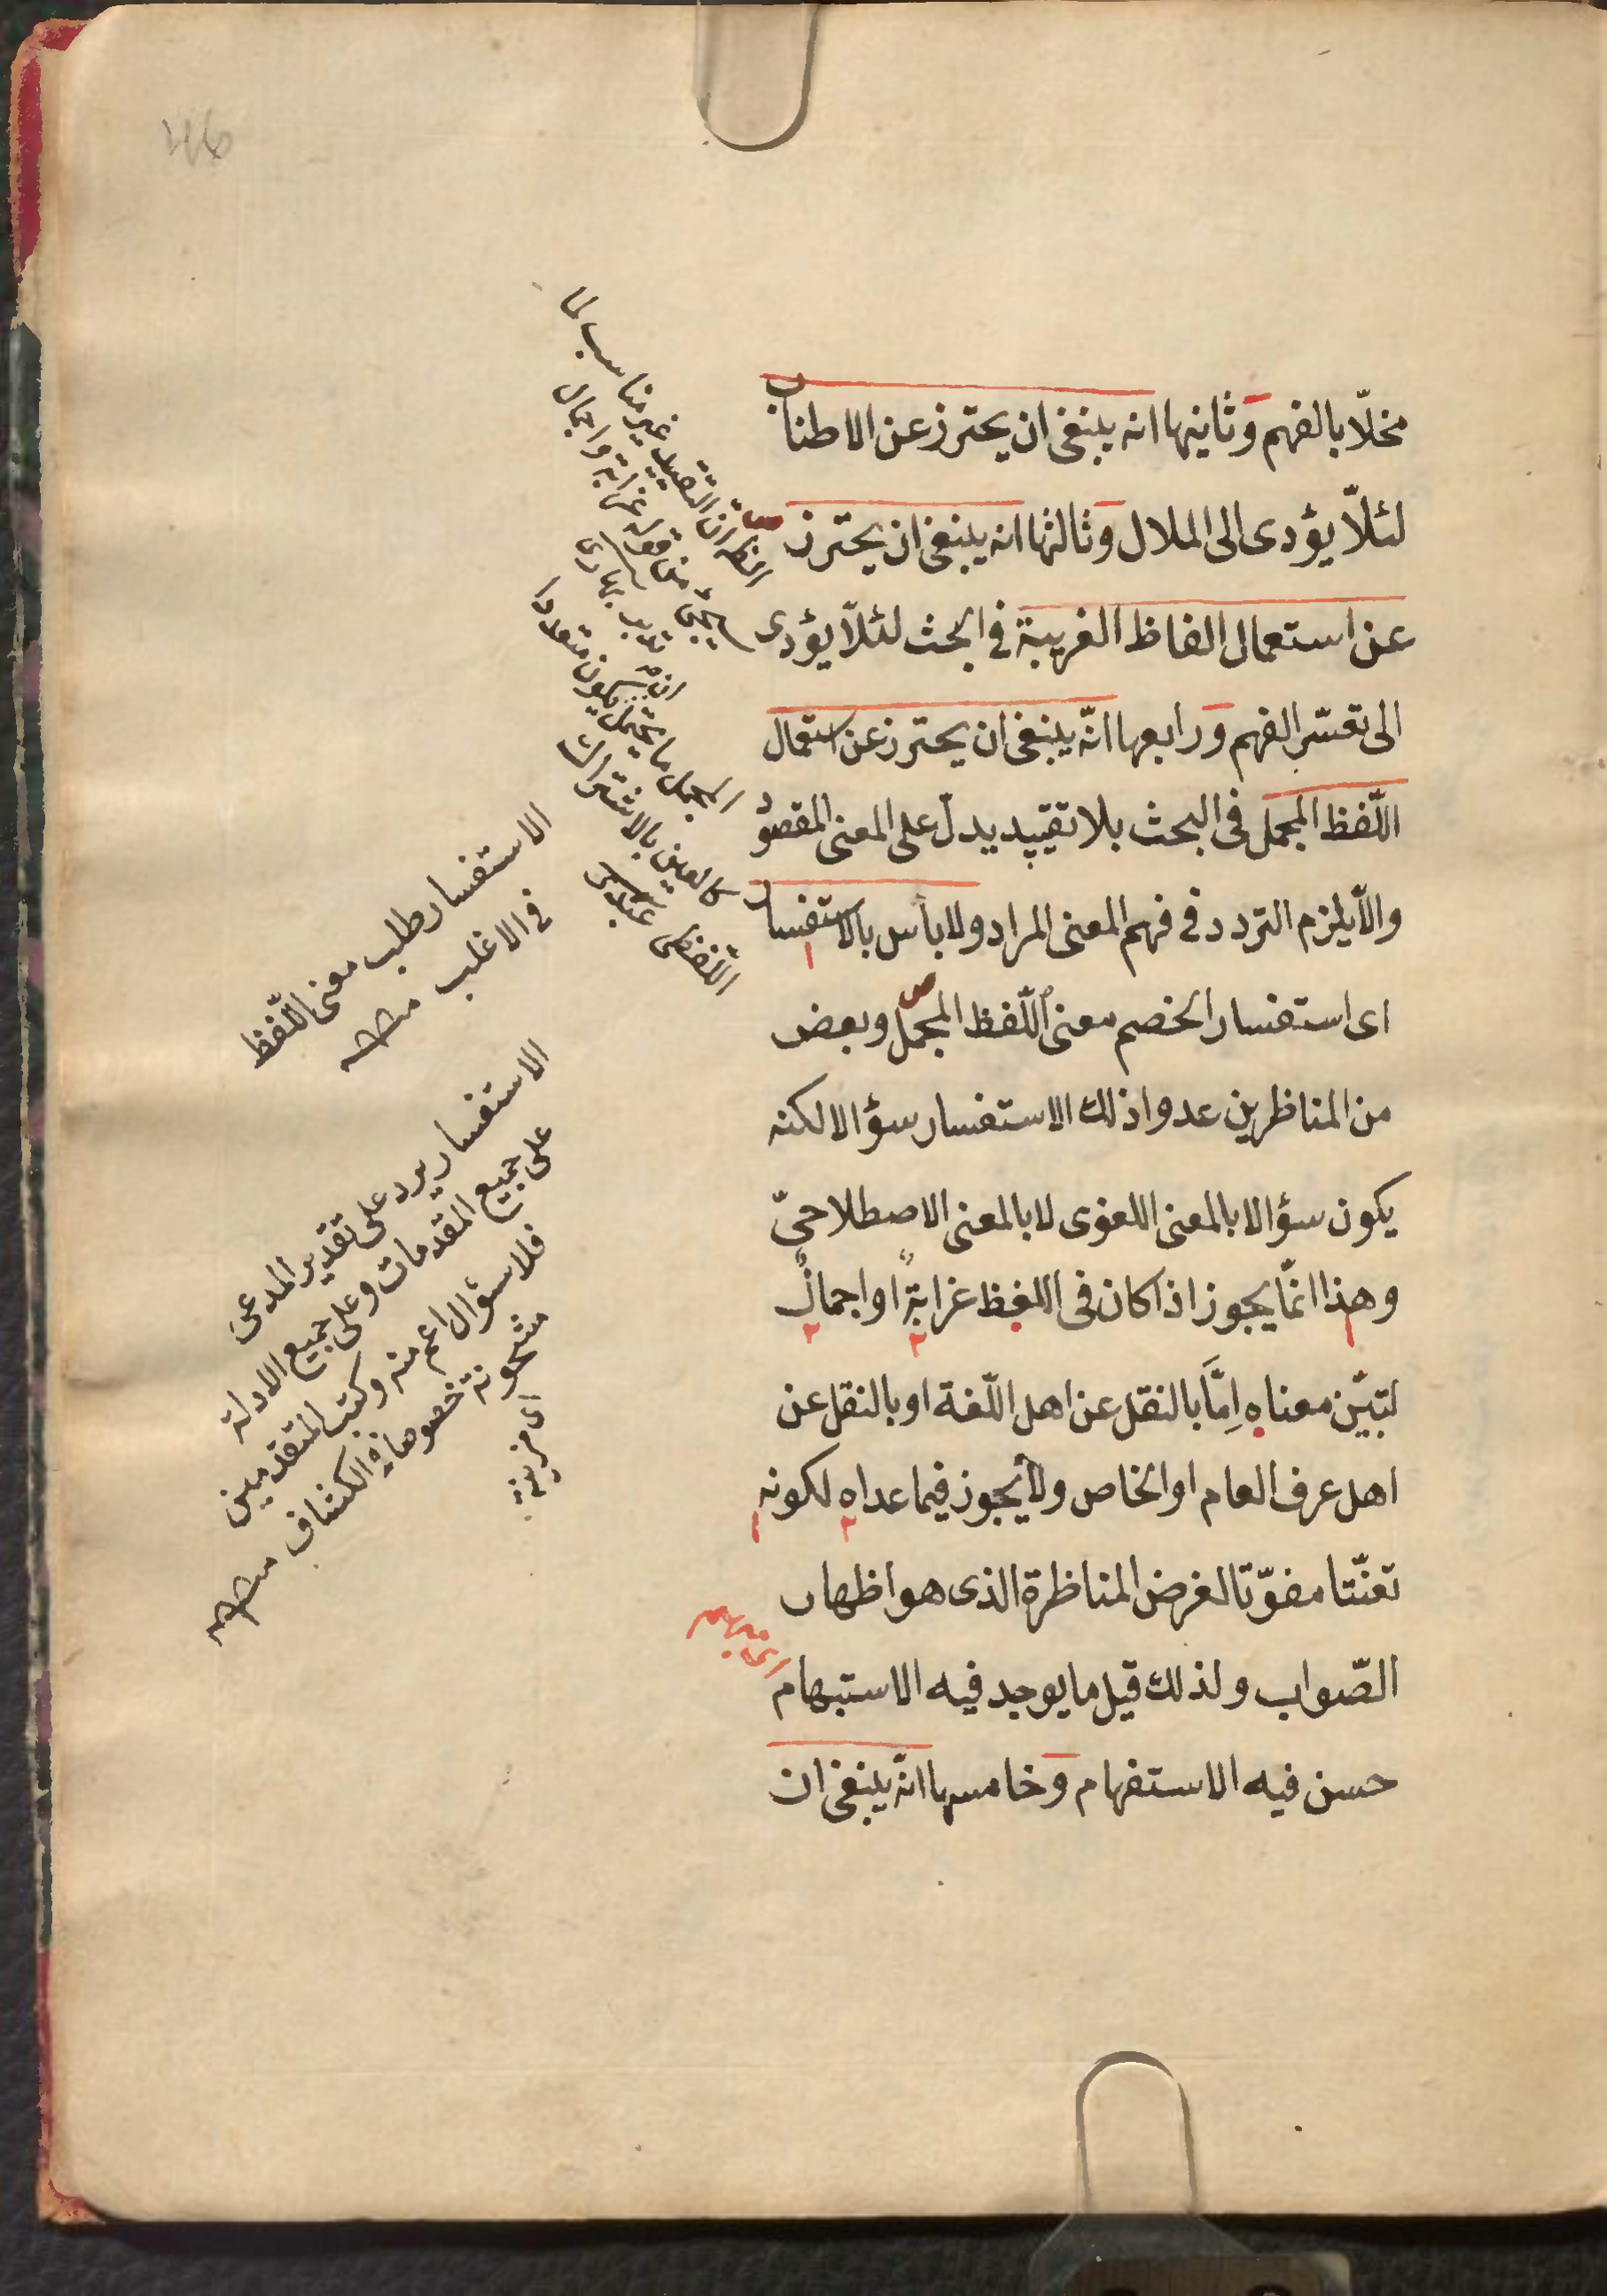 مخلّا بالفهم وثانيها انه ينبغى ان يحترز عن الاطناب
لئلّا يؤدى الى الملال وثالثها انه ينبغى ان يحترز
عن استعمال الفاظ الغريبة فى البحث لئلّا يؤدى
الى تعسّر الفهم ورابعها انّه ينبغى ان يحترز عن استعمال
اللّفظ المجمل فى البحث بلا تقييد يدلّ على المعنى المقصود
والّا يلزم التردد فى فهم المعنى المراد ولا بأس بالاستفسار
اى استفسار الخصم معنى اللّفظ المجمل وبعض
من المناظرين عدوا ذلك الاستفسار سؤالا لكنه
يكون سؤالا بالمعنى اللغوى لا بالمعنى الاصطلاحىّ
وهذا انمّا يجوز اذا كان فى اللفظ غرابةٌ او اجمالٌ
لتبيّن معناه اِمَّا بالنقل عن اهل اللّغة او بالنقل عن
اهل عرف العام او الخاص ولا يجوز فيما عداه لكونه
تعنّتا مفوّتا لغرض المناظرة الذى هو اظهار
الصّواب ولذلك قيل ما يوجد فيه الاستبهام
حسن فيه الاستفهام وخامسها انّه ينبغى ان
ان التقييد غير مناسب لما
سيجئ من قوله غرابة واجمال
المجمل ما يحتمل
كالعين بالاشتراك
اللّفظى
الاستفسار طلب معنى اللّفظ
فى الاغلب منه
الاستفسار يرد على تقدير المدعى
على جميع المقدمات وعلى جميع الادلة
فلا سؤال اعم منه وكتب المتقدمين
مشحونة خصوصا فى الكشاف منه
46